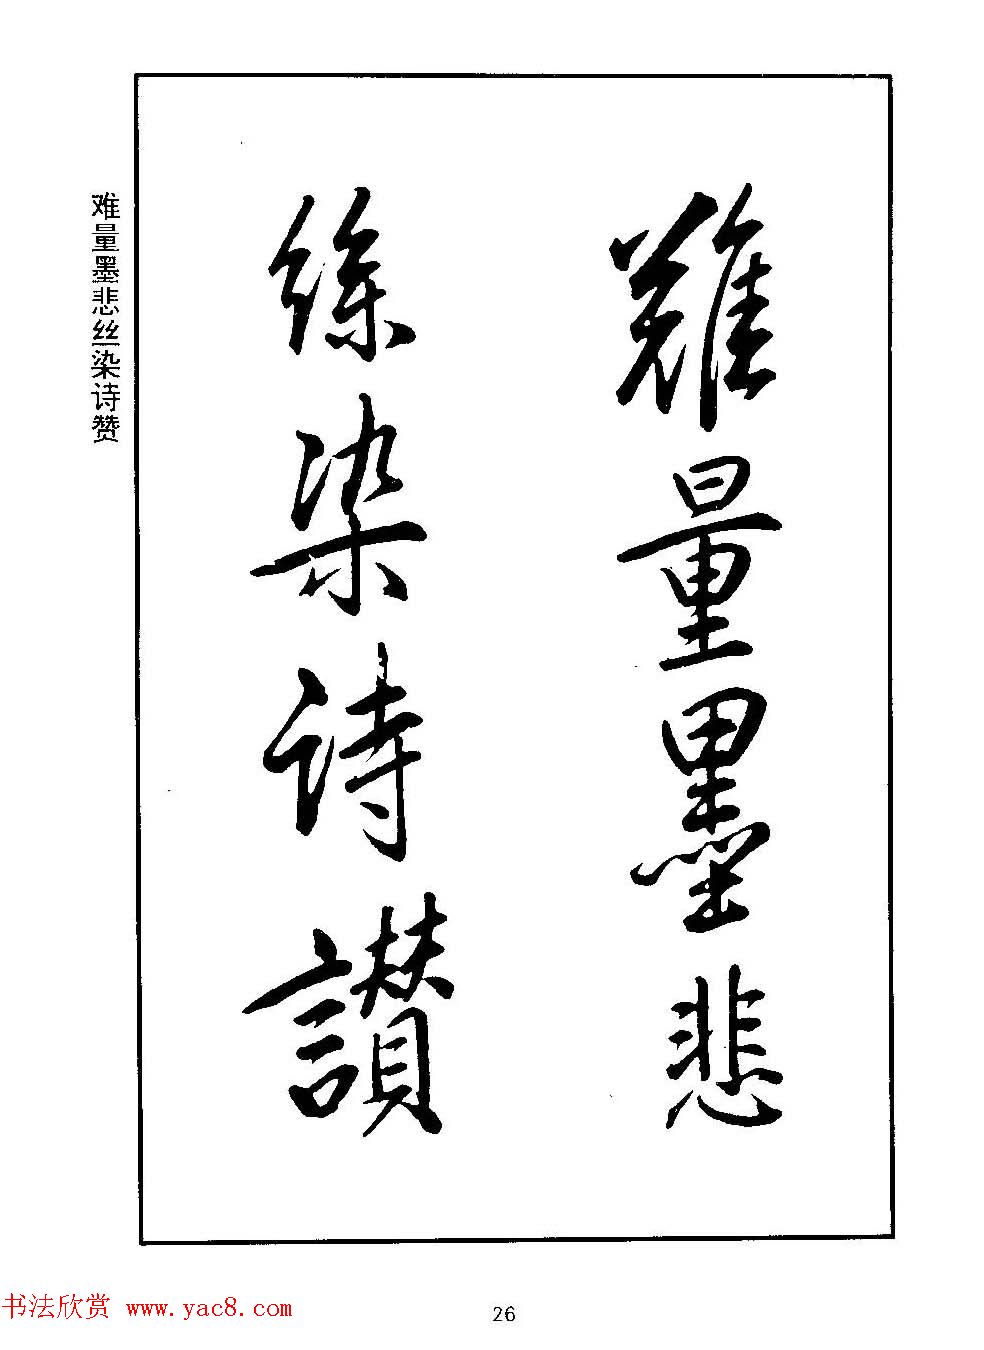 難量墨悲
絲染詩讃
难量墨悲丝染诗赞
书法欣赏 www.yac8.com
26